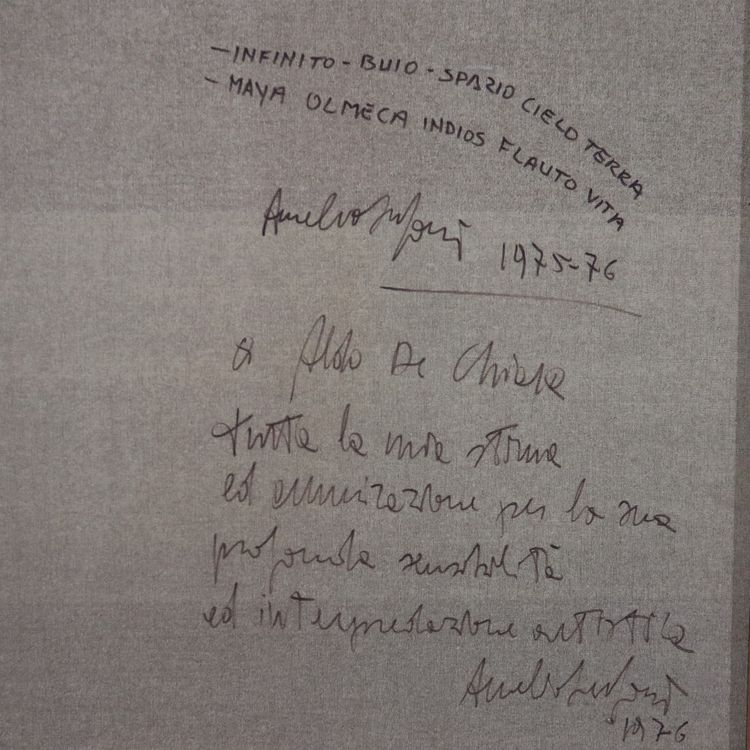 -INFINITO - BUIO - SPAZIO CIELO TERRA
- MAYA OLMECA INDIOS FLAUTO VITA
1975-76
a Aldo De Chiara
tutta la mia stima
ed ammirazione per la sua
profonda sensibilità
ed interpretazione artistica
1976